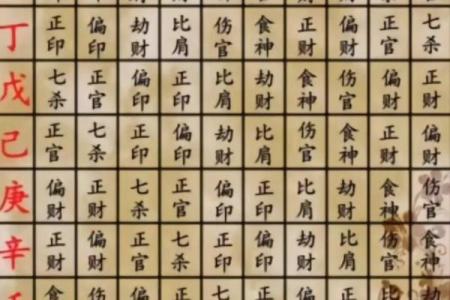 丁 正印 偏印 劫财 比肩 伤官 食神 正财 偏财 正官 七杀
戊 七杀 正官 偏印 正印 比肩 劫财 食神 伤官 偏财 正财
己 正官 七杀 正印 偏印 劫财 比肩 伤官 食神 正财 偏财
庚 偏财 正财 七杀 正官 偏印 正印 比肩 劫财 食神 伤官
辛 正财 偏财 正官 七杀 正印 偏印 劫财 比肩 伤官 食神